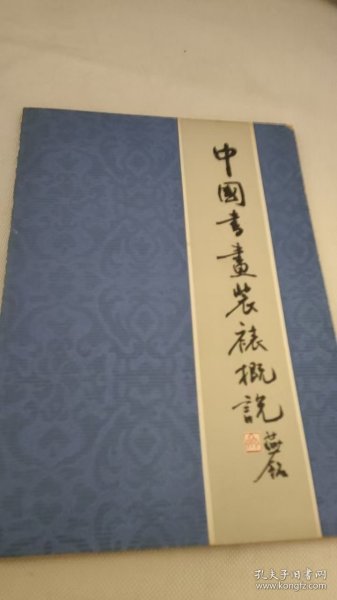 中國書畫裝裱概說
燕銘
孔夫子旧书网
www.kongfz.com